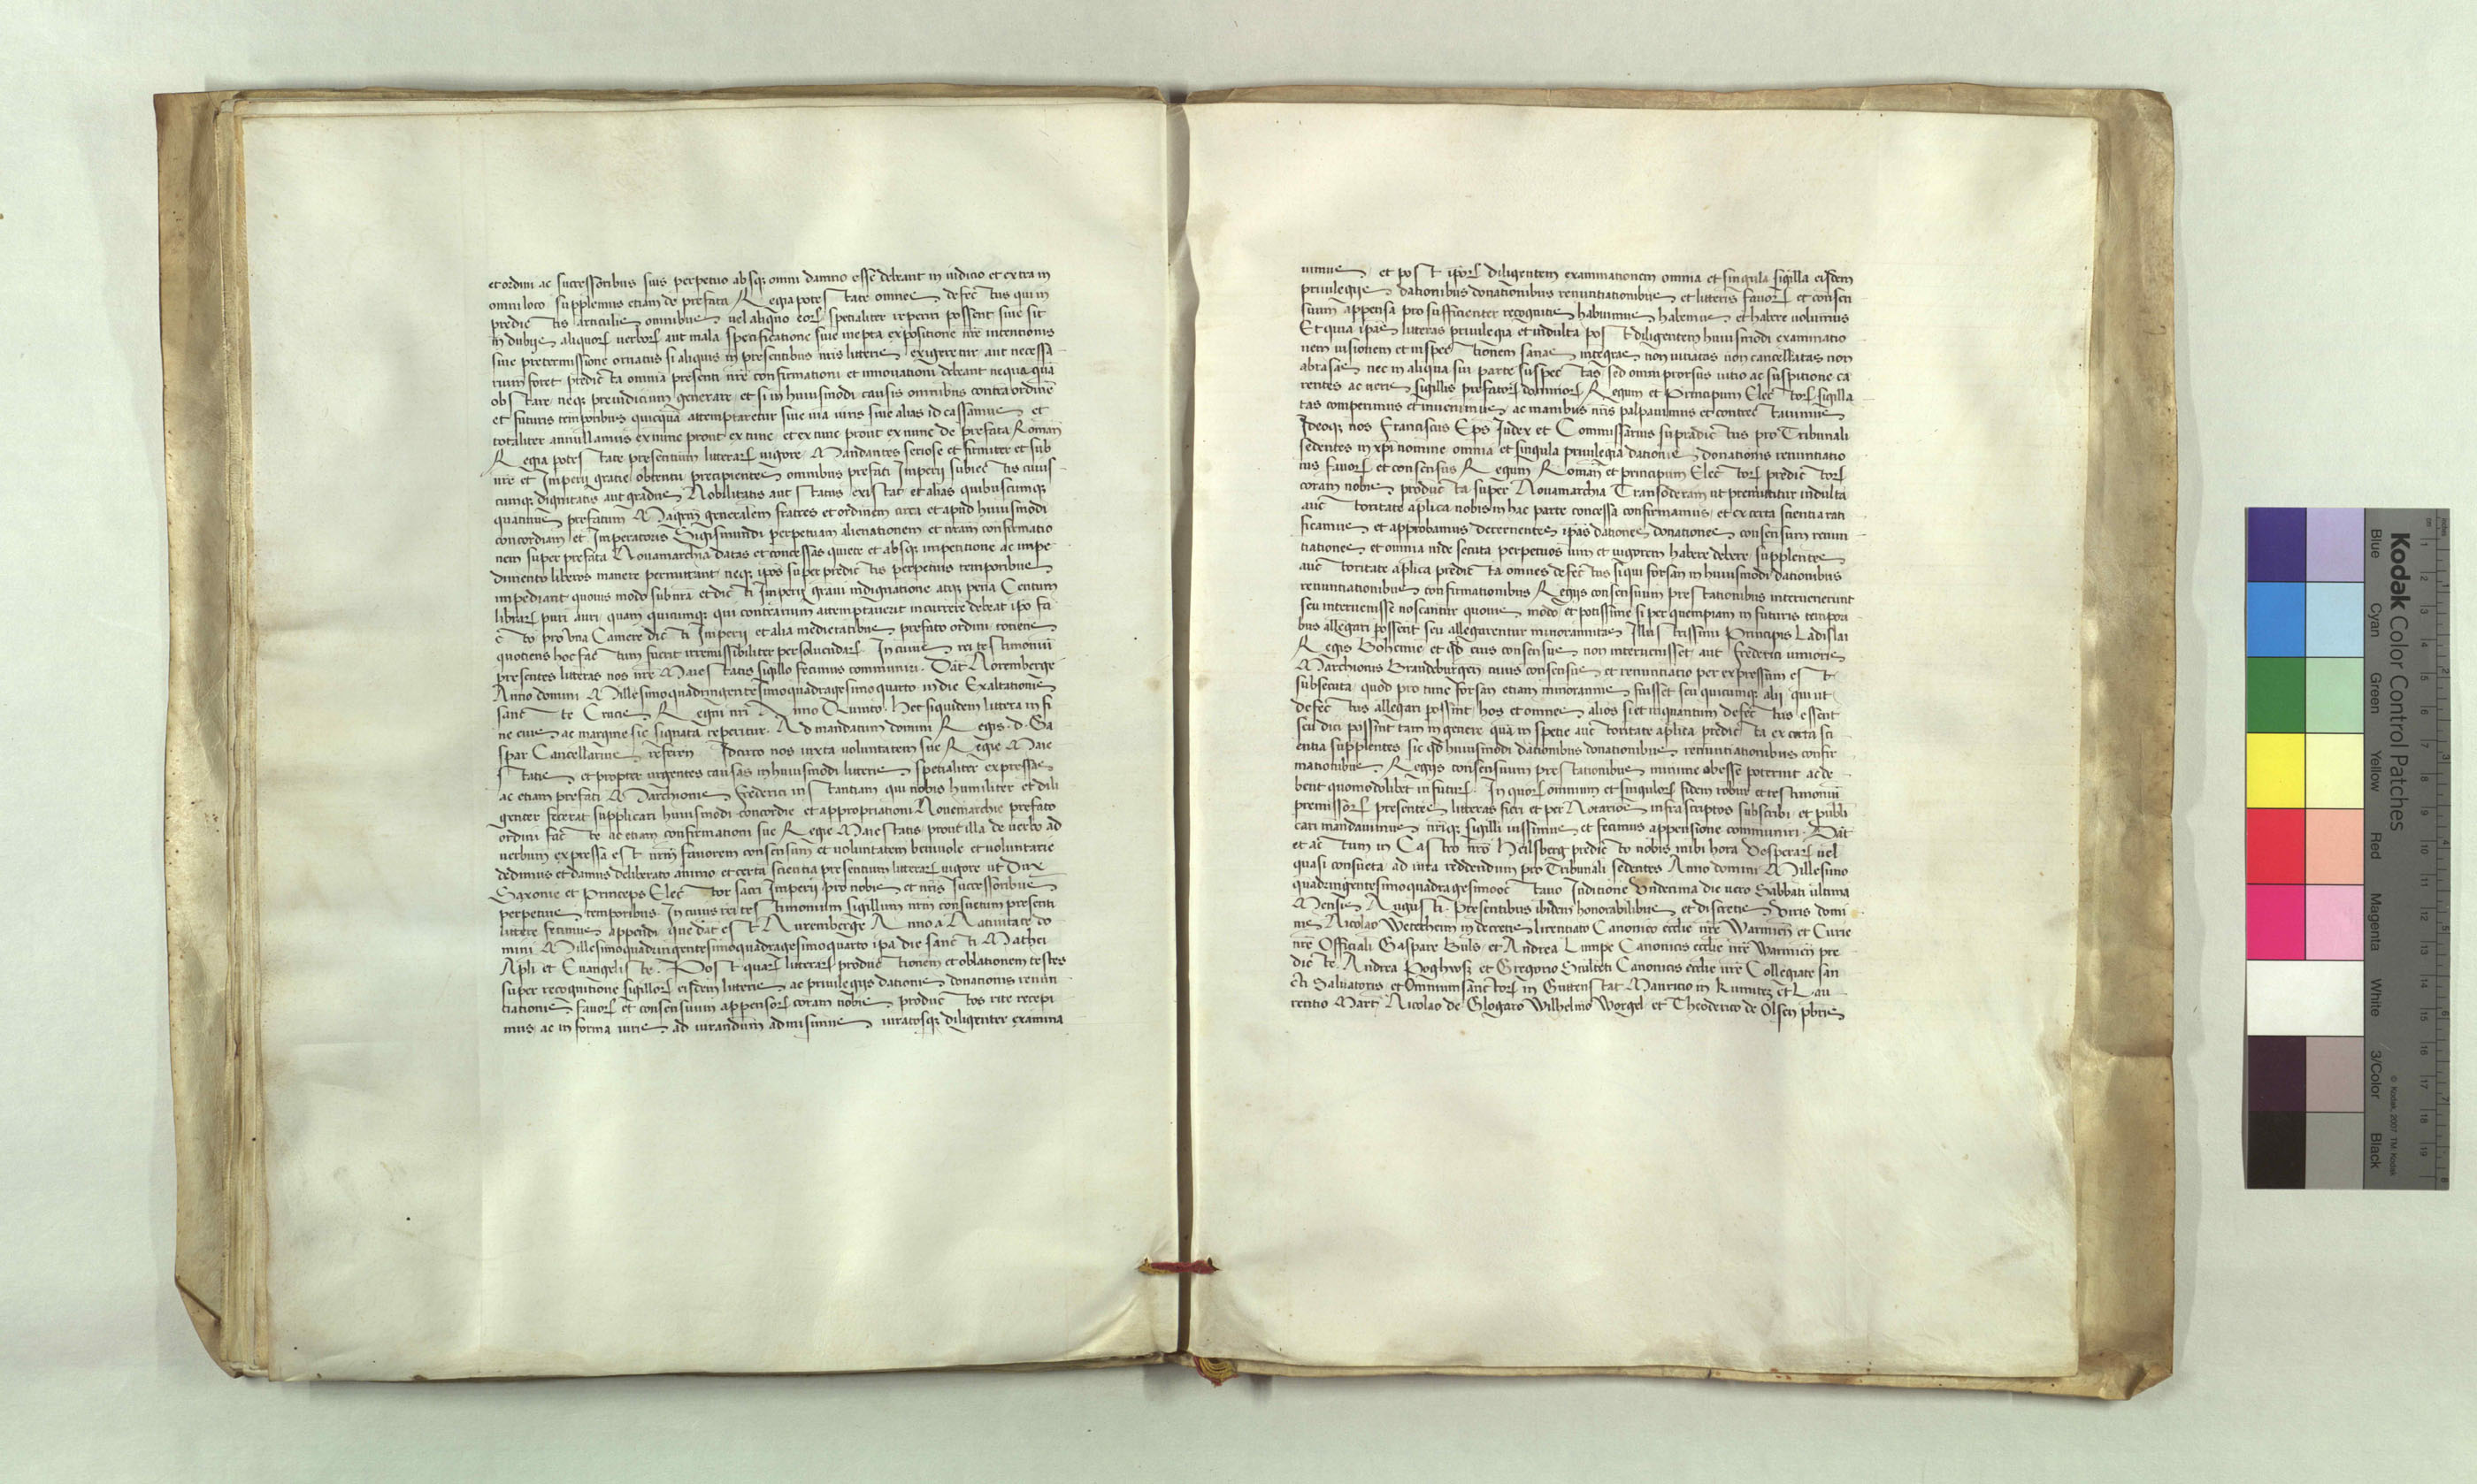 et ordini ac successoribus suis perpetuo absq; omni damno esse debeant in iudicio et extra in
omni loco supplemus etiam de prefata Regia potestate omnes defectus qui in
predictis articulis omnibus uel aliquo eorum specialiter reperiri possent siue sit
in dubijs aliquorum verborum aut mala specificatione siue inepta expositione nre intentionis
siue pretermissione ornatus si aliquis in presentibus nris litteris exigeretur aut necessa
rium foret predicta omnia presenti nre confirmationi et innovationi debeant nequaquam
obstare neq; preiudicium generare et si in huiusmodi causis omnibus contra ordinem
et futuris temporibus quicquam attemptaretur siue via viris siue alias id cassamus et
totaliter annullamus ex nunc prout ex tunc et ex tunc prout ex nunc de prefata Roman
Regia potestate presentium litterarum uigore Mandantes seriose et firmiter et sub
nre et Imperij gratie obtentu precipientes omnibus prefati Imperij subiectis cuius
cunq; dignitatis aut gradus Nobilitatis aut status existat et alias quibuscunq;
quatinus prefatum Magrm generalem fratres et ordinem circa et apud huiusmodi
concordiam et Imperatoris Sigismundi perpetuam alienationem et nram confirmatio
nem super prefata Nouamarchia datas et concessas quiete et absq; impetitione ac impe
dimento liberos manere permittant neq; ipos super predictis perpetuis temporibus
impediant quouis modo sub nra et dicti Imperij graui indignatione atq; pena Centum
librarum puri auri quam quicunq; qui contrarium attemptauerit incurrere debeat ipo fa
cto pro vna Camere dicti Imperij et alia medietatibus prefato ordini totiens
quotiens hoc factum fuerit irremissibiliter persoluendarum In cuius rei testimonium
presentes litteras nos nre Maiestatis sigillo fecimus communiri. Dat Noremberge
Anno domini Millesimoquadringentesimoquadragesimoquarto in die Exaltationis
sancte Crucis Regni nri Anno Quinto. Het siquidem littera in fi
ne eius ac margine sic signata reperitur. Ad mandatum domini Regis. d. Ga
spar Cancellarius referen Idcirco nos iuxta voluntatem sue Regie Maie
statis et propter urgentes causas in huiusmodi litteris specialiter expressas
ac etiam prefati Marchionis Frederici instantiam qui nobis humiliter et dili
genter fecerat supplicari huiusmodi concordie et appropriationi Nouemarchie prefato
ordini facte ac etiam confirmationi sue Regie Maiestatis prout illa de uerbo ad
uerbum expressa est nrm fauorem consensum et uoluntatem beniuole et uoluntarie
dedimus et damus deliberato animo et certa scientia presentium litterarum uigore ut Dux
Saxonie et Princeps Elector sacri Imperij pro nobis et nris successoribus
perpetuis temporibus. In cuius rei testimonium sigillum nrm consuetum presenti
littere fecimus appendi que dat est Nuremberge Anno a Natiuitate do
mini Millesimoquadringentesimoquadragesimoquarto ipa die sancti Mathei
Apli et Euangeliste. Post quarum litterarum productionem et oblationem testes
super recognitione sigillorum eisdem litteris ac privilegijs dationis donationis renun
tiationis fauorum et consensuum appensorum coram nobis productos rite recepi
mus ac in forma iuris ad iurandum admisimus iuratosq; diligenter examina
uimus et post iporum diligentem examinationem omnia et singula sigilla eisdem
priuilegijs dationibus donationibus renuntiationibus et litteris fauorum et consen
suum appensa pro sufficienter recognitis habuimus habemus et habere uolumus
Et quia ipas litteras priuilegia et indulta post diligentem huiusmodi examinatio
nem uisionem et inspectionem sanas integras non uitiatas non cancellatas non
abrasas nec in aliqua sui parte suspectas sed omni prorsus uitio ac suspitione ca
rentes ac ueris sigillis prefatorum dominorum Regum et Principum Electorum sigilla
tas comperimus et inuenimus ac manibus nris palpauimus et contrectauimus
Ideoq; nos Franciscus Eps Iudex et Commissarius supradictus pro Tribunali
sedentes in xpi nomine omnia et singula priuilegia dationis donationis renuntiatio
nis fauorum et consensus Regum Roman et principum Electorum predictorum
coram nobis producta super Nouamarchia Transoderam ut premittitur indulta
auctoritate aplica nobis in hac parte concessa confirmamus et ex certa scientia rati
ficamus et approbamus decernentes ipas dationes donationes consensum renun
tiationes et omnia inde secuta perpetuos ium et uigorem habere debere supplentes
auctoritate aplica predicta omnes defectus si qui forsan in huiusmodi dationibus
renuntiationibus confirmationibus Regijs consensuum prestationibus interuenerunt
seu interuenisse noscantur quouis modo et potissime si per quempiam in futuris tempori
bus allegari possent seu allegarentur minorannitas Illustrissimi Principis Ladislai
Regis Bohemie et qd eius consensus non interuenisset aut Frederici iunioris
Marchionis Brandeburgen cuius consensus et renunciatio per expressum est
subsecuta quod pro tunc forsan etiam minorannus fuisset seu quicunq; alij qui ut
defectus allegari possint hos et omnes alios si et inquantum defectus essent
seu dici possint tam in genere qua in specie auctoritate aplica predicta ex certa sci
entia supplentes sic qd huiusmodi dationibus donationibus renuntiationibus confir
mationibus Regijs consensuum prestationibus minime obesse poterint ac de
bent quomodolibet in futurum In quorum omnium et singulorum fidem robur et testimonium
premissorum presentes litteras fieri et per Notarios infrascriptos subscribi et publi
cari mandauimus nriq; sigilli iussimus et fecimus appensione communiri. Dat
et actum in Castro nro Heilsberg predicto nobis inibi hora Vesperarum uel
quasi consueta ad iura reddendum pro Tribunali sedentes Anno domini Millesimo
quadringentesimoquadragesimooctauo Inditione Vndecima die uero Sabbati ultima
Mensis Augusti. Presentibus ibidem honorabilibus et discretis Viris domi
nis Nicolao Wetecheim in decretis licentiato Canonico ecclie nre Warmien et Curie
nre Officiali Gaspare Buls et Andrea Lumpe Canonicis ecclie nre Warmien pre
dicte. Andrea Poghwisz et Gregorio Sculteti Canonicis ecclie nre Collegiate san
cti Saluatoris et Omnium sanctorum in Guttenstat Mauricio in Kunitez et Lau
rentio Mart Nicolao de Glogaro Wilhelmo Worgel et Theoderico de Olsen pbris